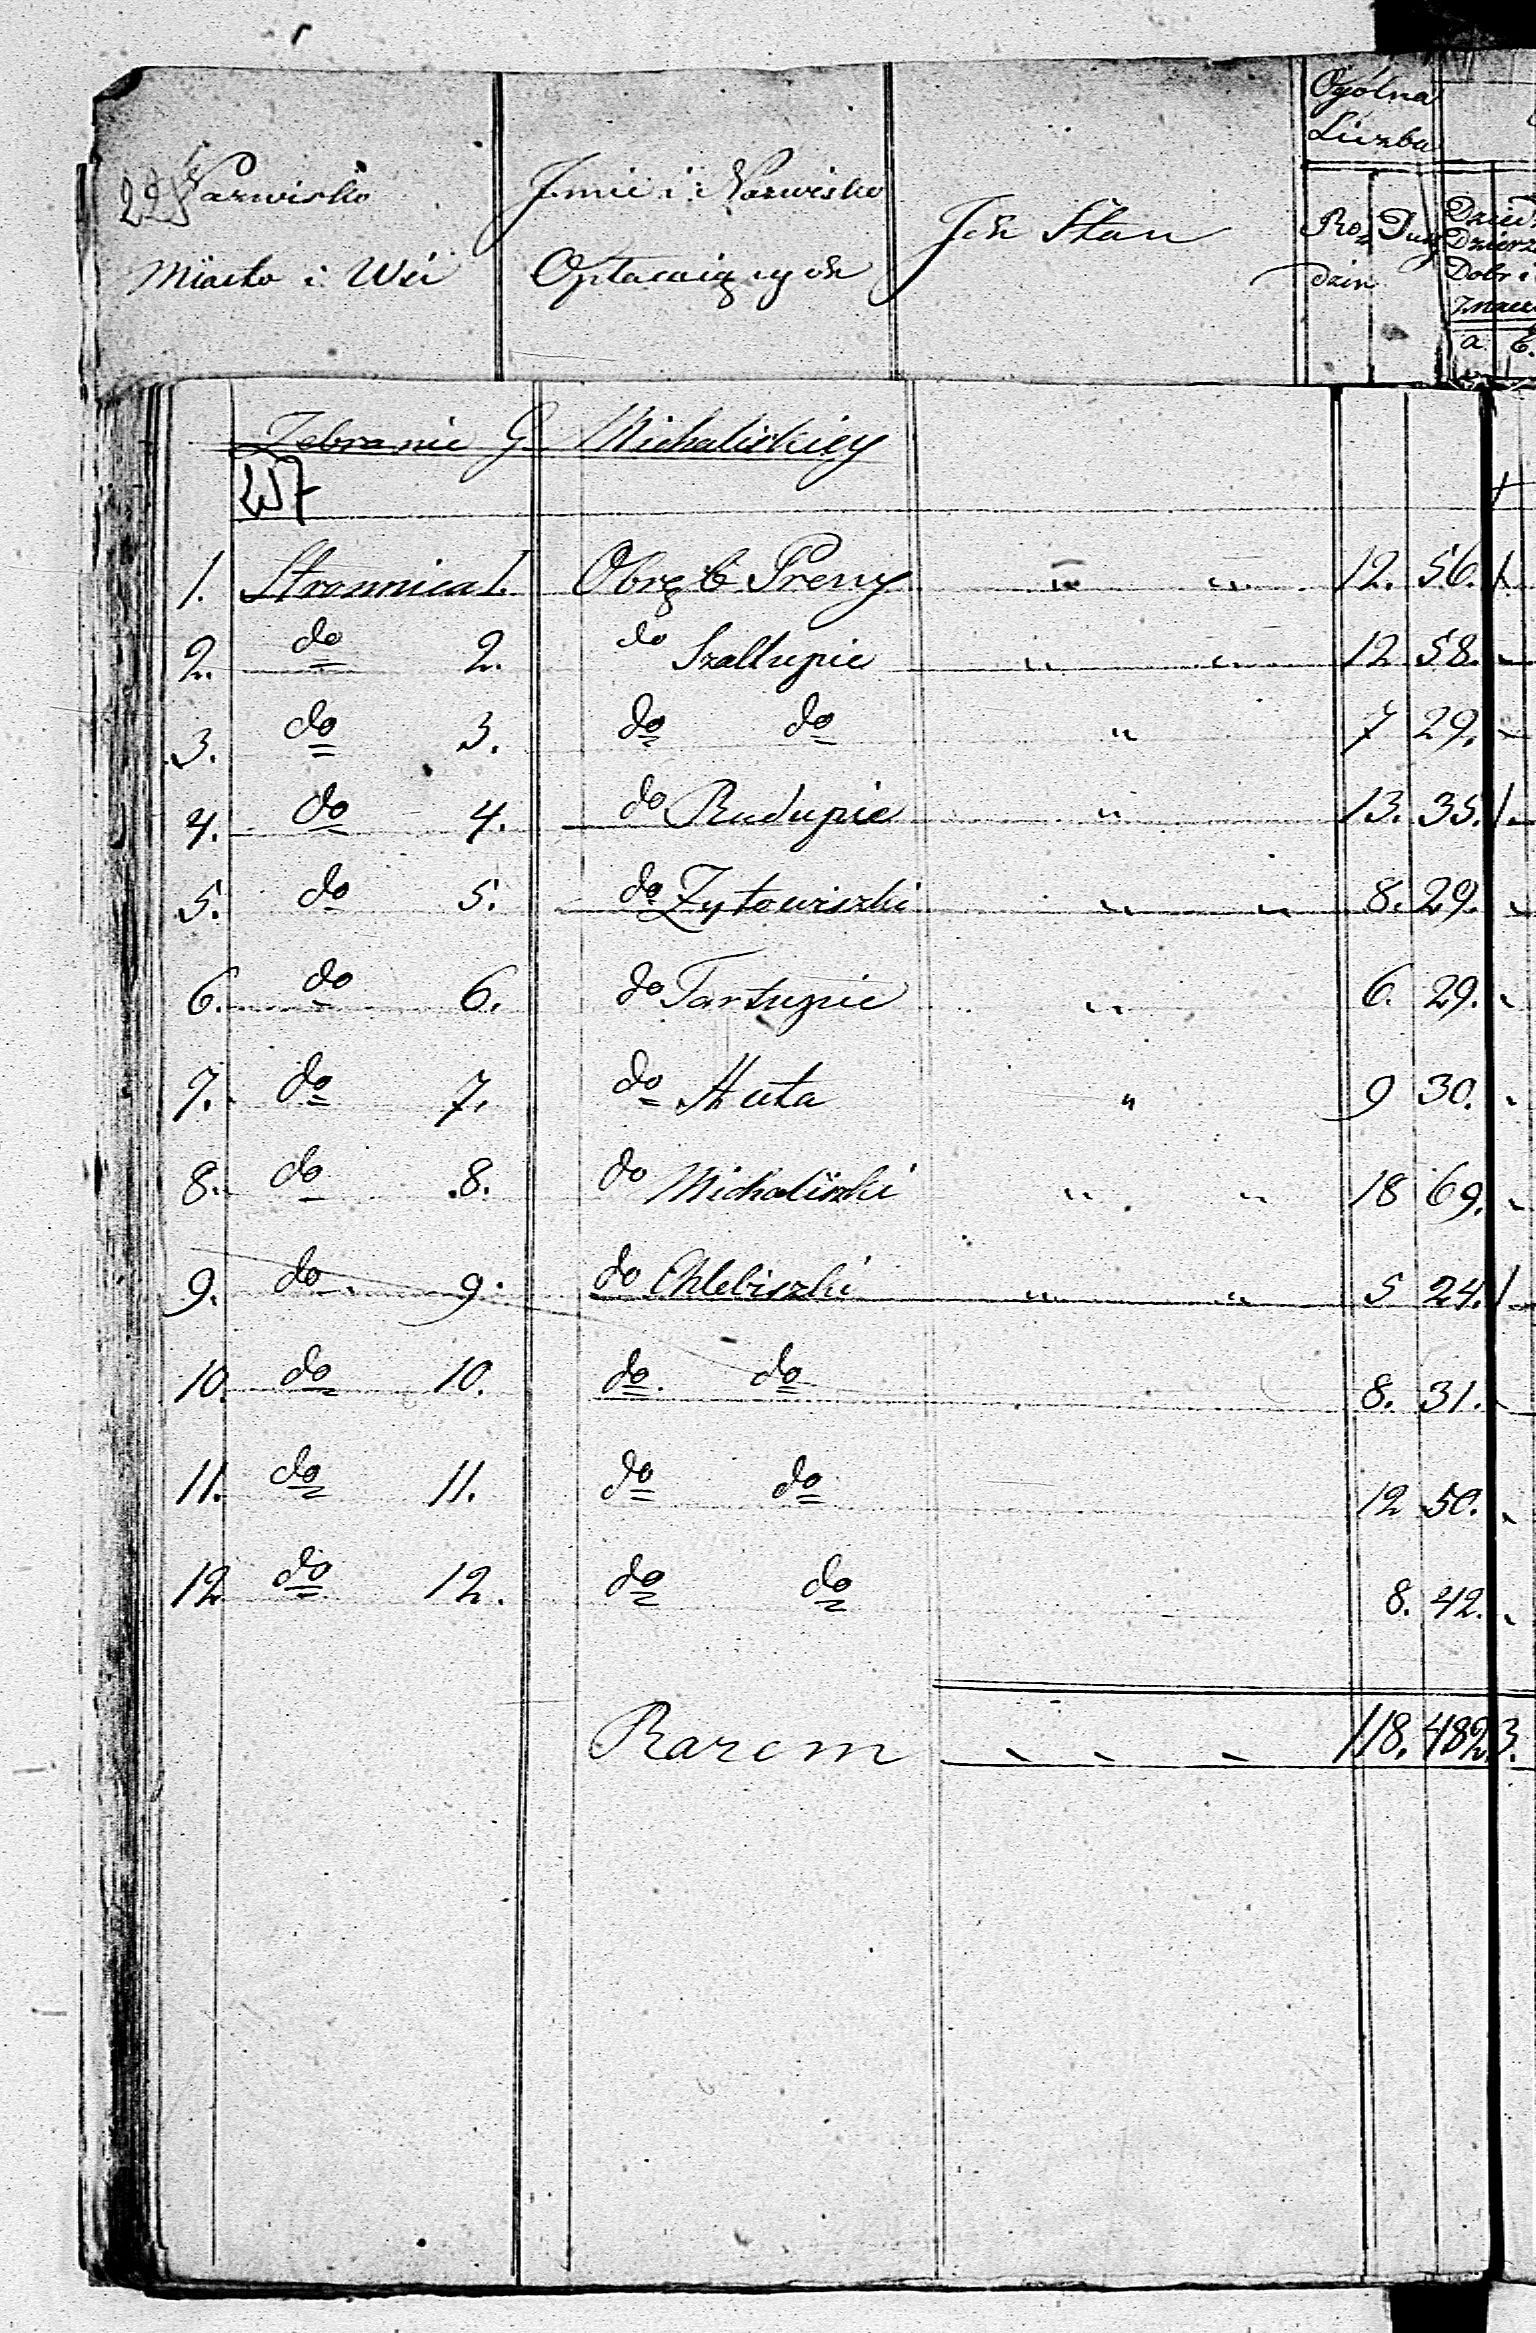 Nazwisko Imie i Nazwisko Ich Stan Ogólna
Liczba
Miasto i Wsi Opłacaiących Ro= Dusz
dzin
Dzied
Dzierz
Dobr i
Znacz
a. b.
Zebranie G Michaliskiey
1. Stronnica 1. Obręb Preny " " 12. 56. 1.
2. do 2. do Szaltupie " " 12 58.
3. do 3. do do " 7 29.
4. do 4. do Rudupie " 13. 35. 1.
5. do 5. do Zytowiszki " " 8. 29.
6. do 6. do Tartupie " 6. 29.
7. do 7. do Huta " 9 30.
8. do 8. do Michaliszki " " 18 69.
9. do 9. do Chlebiszki " " 5 24. 1
10. do 10. do do 8. 31.
11. do 11. do do 12 50.
12 do 12. do do 8. 42.
Razem 118. 482 3.